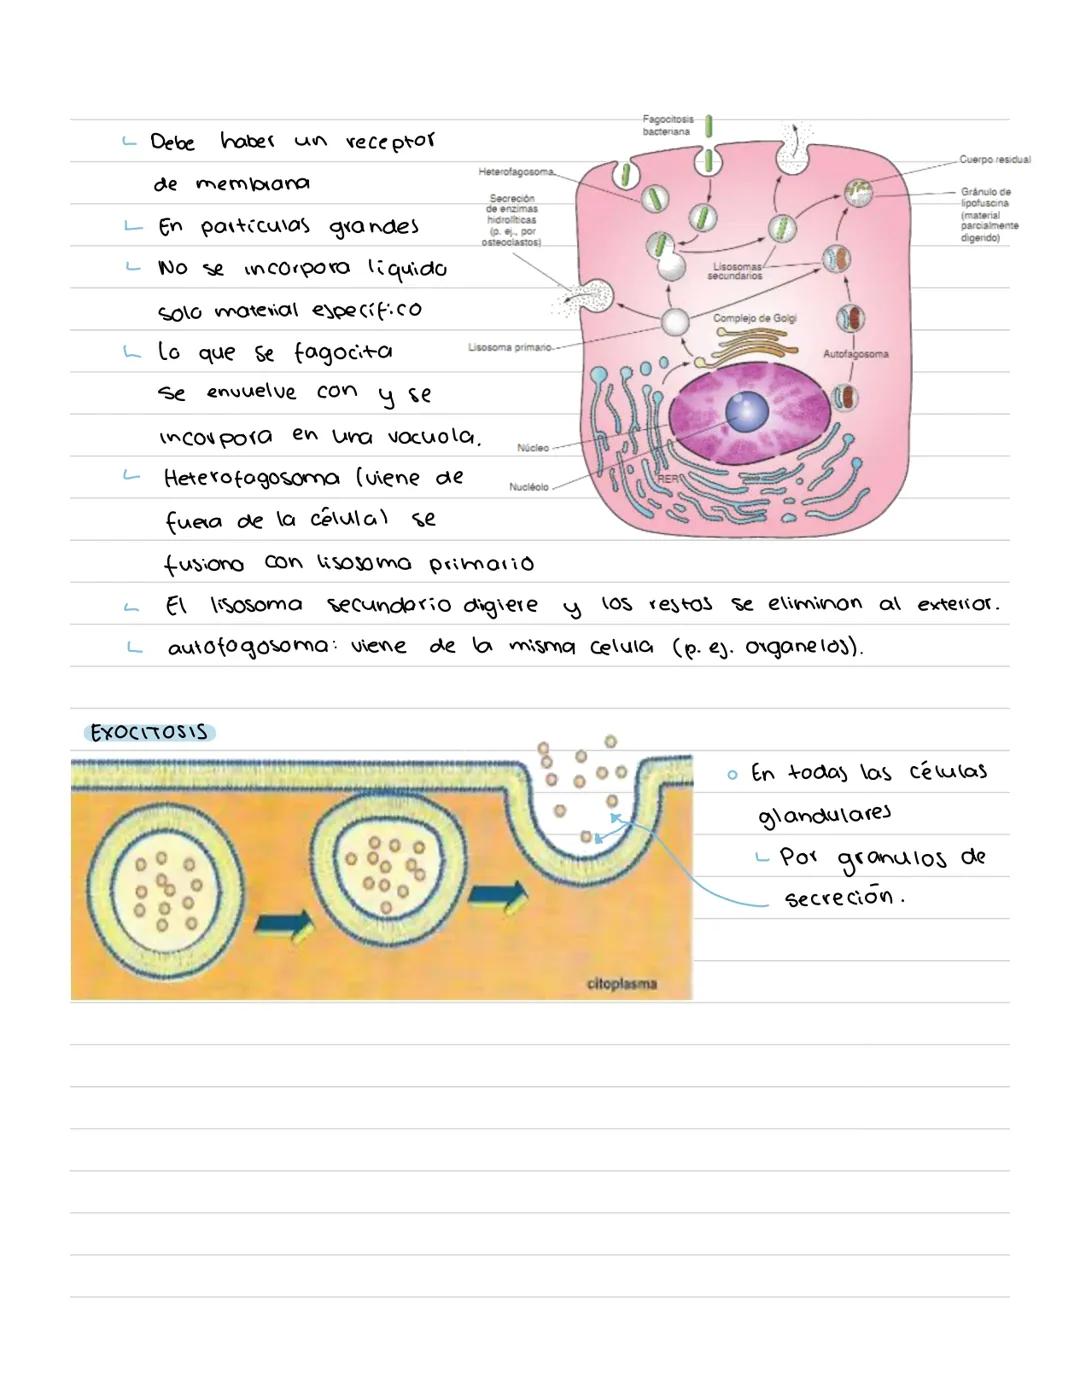 Debe haber un receptor
de membrana
En partículas grandes
No se incorpora líquido
solo material específico
lo que se fagocita
se envuelve con y se
incorpora en una vacuola.
Heterofagosoma (viene de
fuera de la célula) se
fusiona con lisosoma primario
El lisosoma secundario digiere y los restos se eliminan al exterior.
autofagosoma: viene de la misma celula (p. ej. organelos).
Fagocitosis
bacteriana
Heterofagosoma
Secreción
de enzimas
hidrolíticas
(p. ej., por
osteoclastos)
Cuerpo residual
Gránulo de
lipofuscina
(material
parcialmente
digerido)
Lisosomas
secundarios
Complejo de Golgi
Lisosoma primario
Autofagosoma
Núcleo
Nucléolo
RER
EXOCITOSIS
En todas las células
glandulares
Por granulos de
secreción.
citoplasma